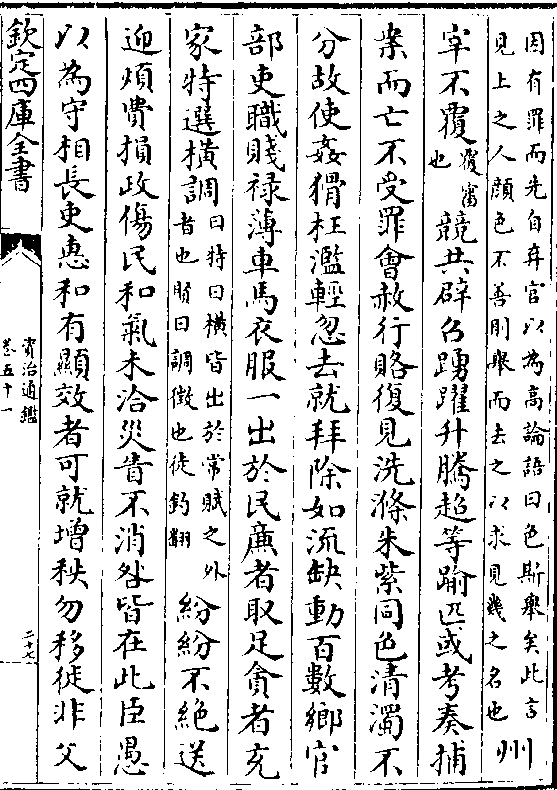 因有罪而先自弃官以為高論語曰色斯舉矣此言
見上之人顔色不善則舉而去之以求見幾之名也
州
宰不覆
覆審
也
競共辟召踴躍升騰超等踰匹或考奏捕
案而亡不受罪會赦行賂復見洗滌朱紫同色清濁不
分故使姦猾枉濫輕忽去就拜除如流缺動百數鄉官
部吏職賤祿薄車馬衣服一出於民廉者取足貪者充
家特選橫調
曰特曰橫皆出於常賦之外
者也賢曰調徴也徒釣翻
紛紛不絶送
迎煩費損政傷民和氣未洽災眚不消咎皆在此臣愚
以為守相長吏惠和有顯效者可就增秩勿移徙非父
欽定四庫全書
資治通鑑
卷五十一
二十七